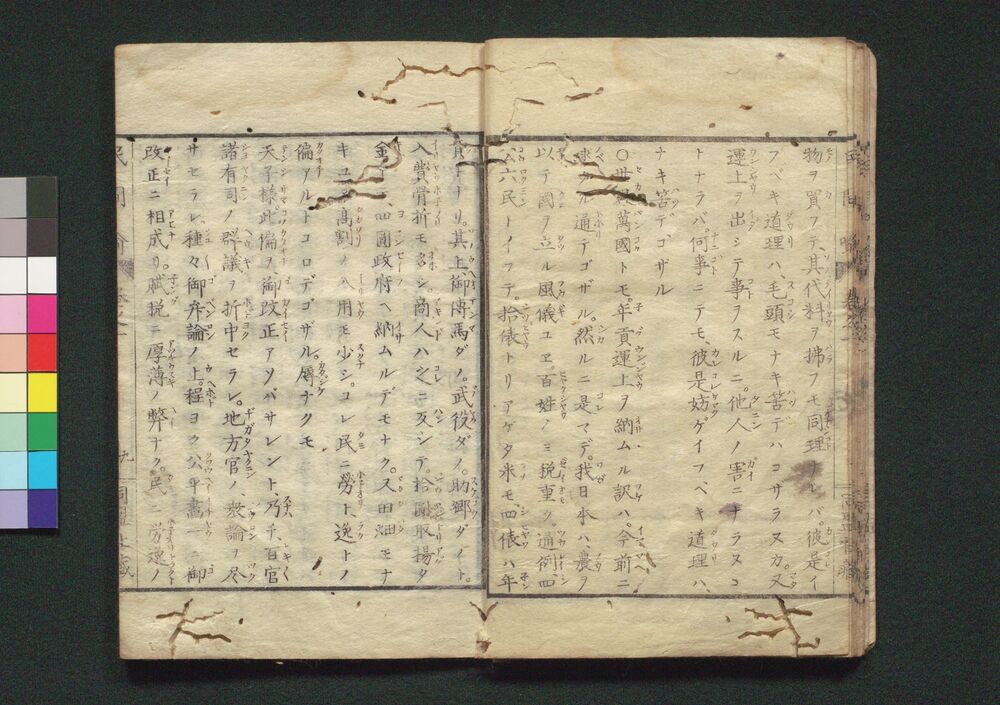 物ヲ買フテ、其代料ヲ拂フモ同理ナレバ。彼是イ
フベキ道理ハ、毛頭モナキ筈デハコサラヌカ。又
運上ヲ出シテ事ヲスルニ。他人ノ害ニナラヌコ
トナラバ。何事ニテモ、彼是妨ゲイフ、ベキ道理ハ、
ナキ筈デ、ゴザル
〇世界萬國トモ。年貢運上ヲ納ムル訳ハ。今前ニ
述タル通デゴザル。然ルニ是マデ。我日本ハ、農ヲ
以テ國ヲ立ル風儀ユヱ。百姓ノミ税重ク。通例四
公六民トイフテ。拾俵トリアケタ米モ四俵ハ年
貢トナリ。其上御傳馬ダノ。武役ダノ。助郷ダノト。
入費骨折モ多シ。商人ハ之ニ反シテ。拾圓取揚タ
金 四圓政府ヘ納ムルデモナク。又田畑モナ
キユヱ高割ノ入用モ少シ。コレ民ニ勞ト逸トノ
偏アルトコロデゴザル。辱ナクモ
天子様此偏ヲ御改正アソバサレント、乃チ百官
諸有司ノ群議ヲ折中セラレ。地方官ノ、衆論ヲ尽
サセラレ、種々御弁論ノ上。程ヨク公平畫一ニ御
改正ニ相成リ。賦税ニ厚薄ノ弊ナク。民ニ労逸ノ
九